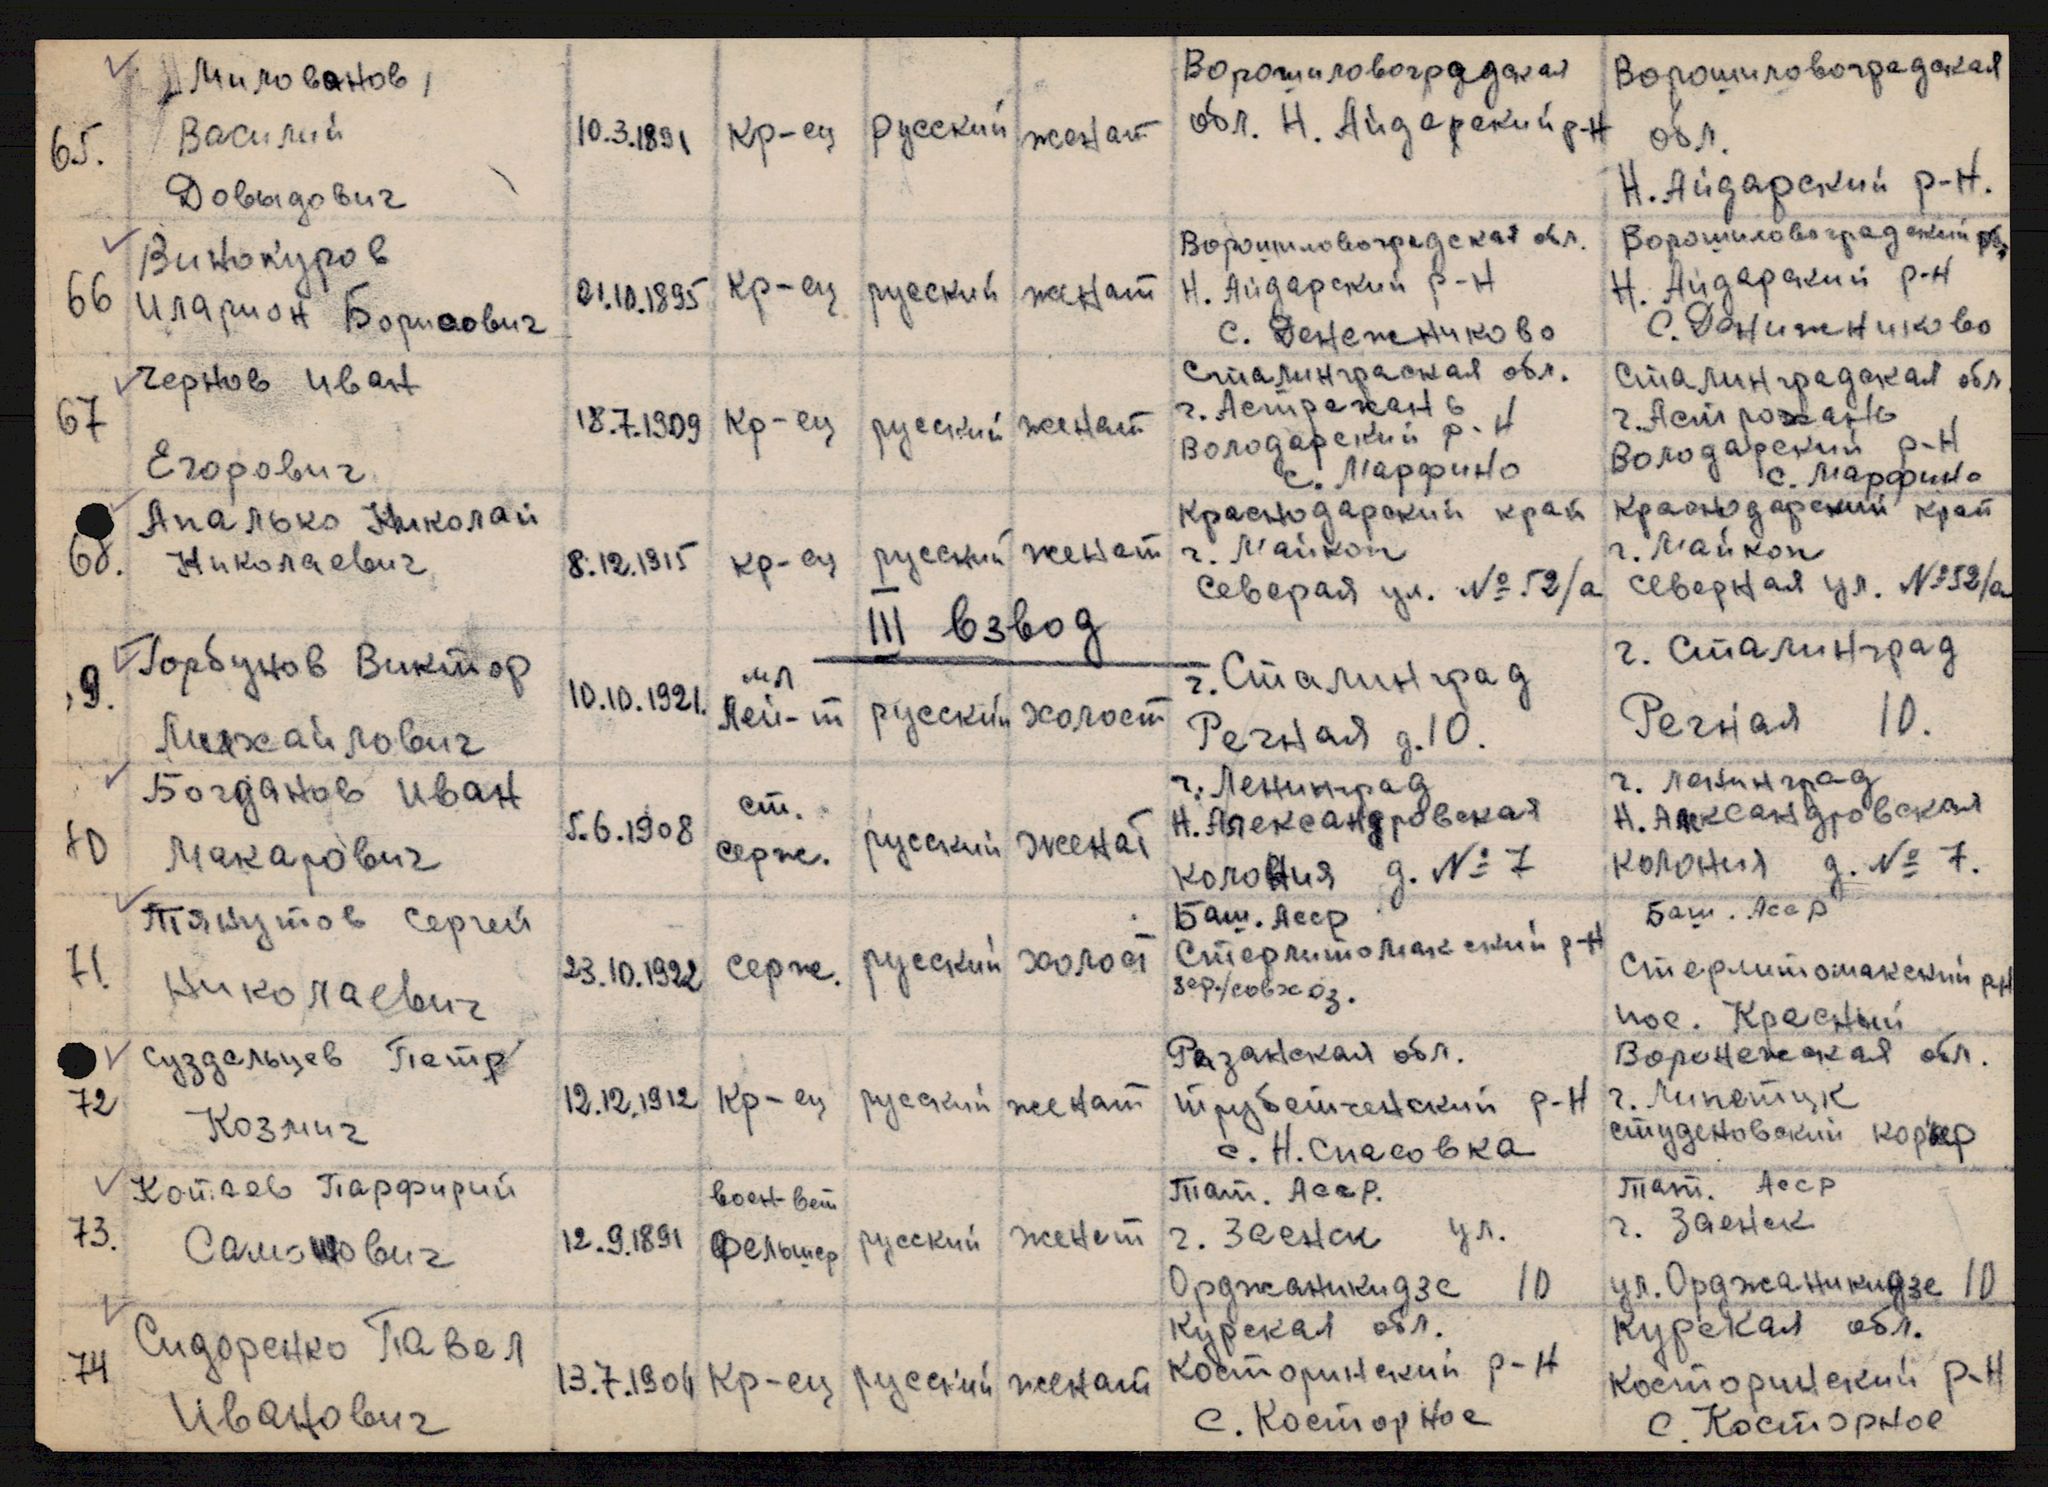 65.
Милованов
Василий
Довыдович
10.3.1891
Кр-ец
русский
женат
Ворошиловоградская
обл. Н. Айдарский р-н
Ворошиловоградская
обл.
Н. Айдарский р-н.
66
Винокуров
Иларион Борисович
21.10.1895
Кр-ец
русский
женат
Ворошиловоградская обл.
Н. Айдарский р-н
с. Денежниково
Ворошиловоградский
Н. Айдарский р-н
с. Денижниково
67
Чернов Иван
Егорович
18.7.1909
Кр-ец
русский
женат
Сталинграская обл.
г. Астрахань
Володарский р-н
с. Марфино
Сталинградская обл.
г. Астрохань
Володарский р-н
с. Марфино
68.
Апалько Николай
Николаевич
8.12.1915
кр-ец
русский
женат
Краснодарский край
г. Майкоп
Северая ул. № 52/а
Краснодарский край
г. Майкоп
Северная ул. № 52/а
III взвод
9.
Горбунов Виктор
Михайлович
10.10.1921.
мл
Лей-т
русский
холост
г. Сталинград
Речная д. 10.
г. Сталинград
Речная 10.
70
Богданов Иван
Макарович
5.6.1908
ст.
серж.
русский
женат
г. Ленинград
Н. Александровская
колония д. № 7
г. Ленинград
Н. Александровская
колония д. № 7.
71.
Тякутов Сергей
Николаевич
23.10.1922
серж.
русский
холост
Баш. Асср
Стерлитомакский р-н
зер./совхоз.
Баш. Асср
Стерлитомакский р-н
пос. Красный
72
Суздальцев Петр
Козмич
12.12.1912
Кр-ец
русский
женат
Рязанская обл.
трубетченский р-н
с. Н. Спасовка
Воронежская обл.
г. Липетцк
студеновский корьер
73.
Копаев Парфирий
Самонович
12.9.1891
воен-вет
фельшер
русский
женат
Тат. Асср.
г. Заенск ул.
Орджаникидзе 10
Тат. Асср
г. Заенск
ул. Орджаникидзе 10
74
Сидоренко Павел
Иванович
13.7.1904
Кр-ец
русский
женат
Курская обл.
Косторинский р-н
с. Косторное
Курская обл.
Косторинский р-н
с. Косторное